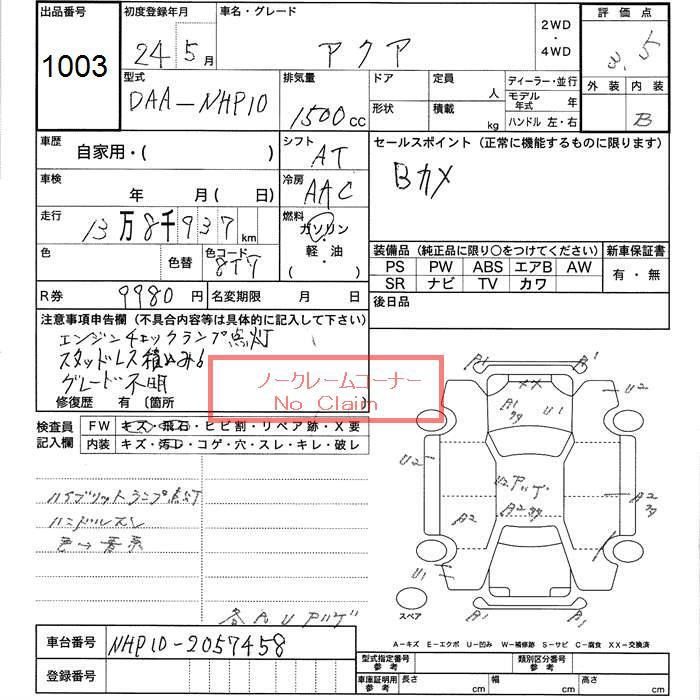 出品番号
1003
初度登録年月
24 5月
車名・グレード
アクア
2WD
・
4WD
評価点
3.5
外装 内装
B
型式
DAA-NHP10
排気量
1500cc
ドア
定員
人
ディーラー・並行
モデル年式 年
形状
積載
kg
ハンドル 左・右
車歴
自家用・( )
シフト
AT
セールスポイント (正常に機能するものに限ります)
Bカメ
車検
年 月( 日)
冷房
AAC
走行
13万8千937km
燃料
ガソリン
・
軽・油
( )
色
色替
色コード
8T7
装備品 (純正品に限り○をつけてください)
PS PW ABS エアB AW
SR ナビ TV カワ
新車保証書
有・無
R券
9980円
名変期限 月 日
後日品
注意事項申告欄 (不具合内容等は具体的に記入して下さい)
エンジンチェックランプ点灯
スタッドレス積込み
グレード不明
修復歴 有 〔箇所
ノークレームコーナー
No Claim
検査員
記入欄
FW キズ・飛石・ヒビ割・リペア跡・X要
内装 キズ・汚レ・コゲ・穴・スレ・キレ・破レ
ハイブリットランプ点灯
ハンドルスレ
各AUアリ
A1 A1
XX
U2
U1
U2
A2
A2
U1
A1 A1
スペア
A-キズ E-エクボ U-凹み W-補修跡 S-サビ C-腐食 XX-交換済
車台番号
NHP10-2057458
登録番号
型式指定番号
参考
類別区分番号
参考
車庫証明用
参考
長さ cm
幅 cm
高さ cm